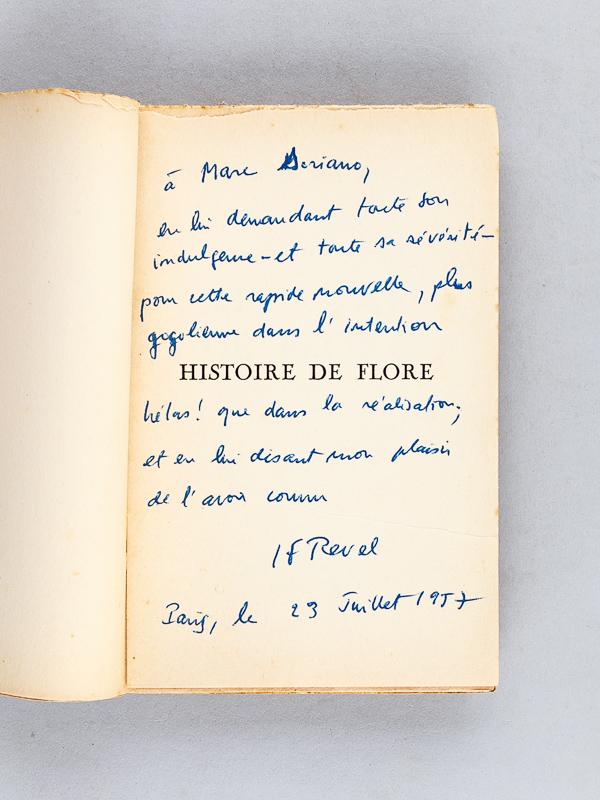 à Marc Soriano,
en lui demandant toute son
indulgence – et toute sa sévérité –
pour cette rapide nouvelle, plus
gogolienne dans l'intention
HISTOIRE DE FLORE
hélas! que dans la réalisation;
et en lui disant mon plaisir
de l'avoir connu
JF Revel
Paris, le 23 Juillet 1957